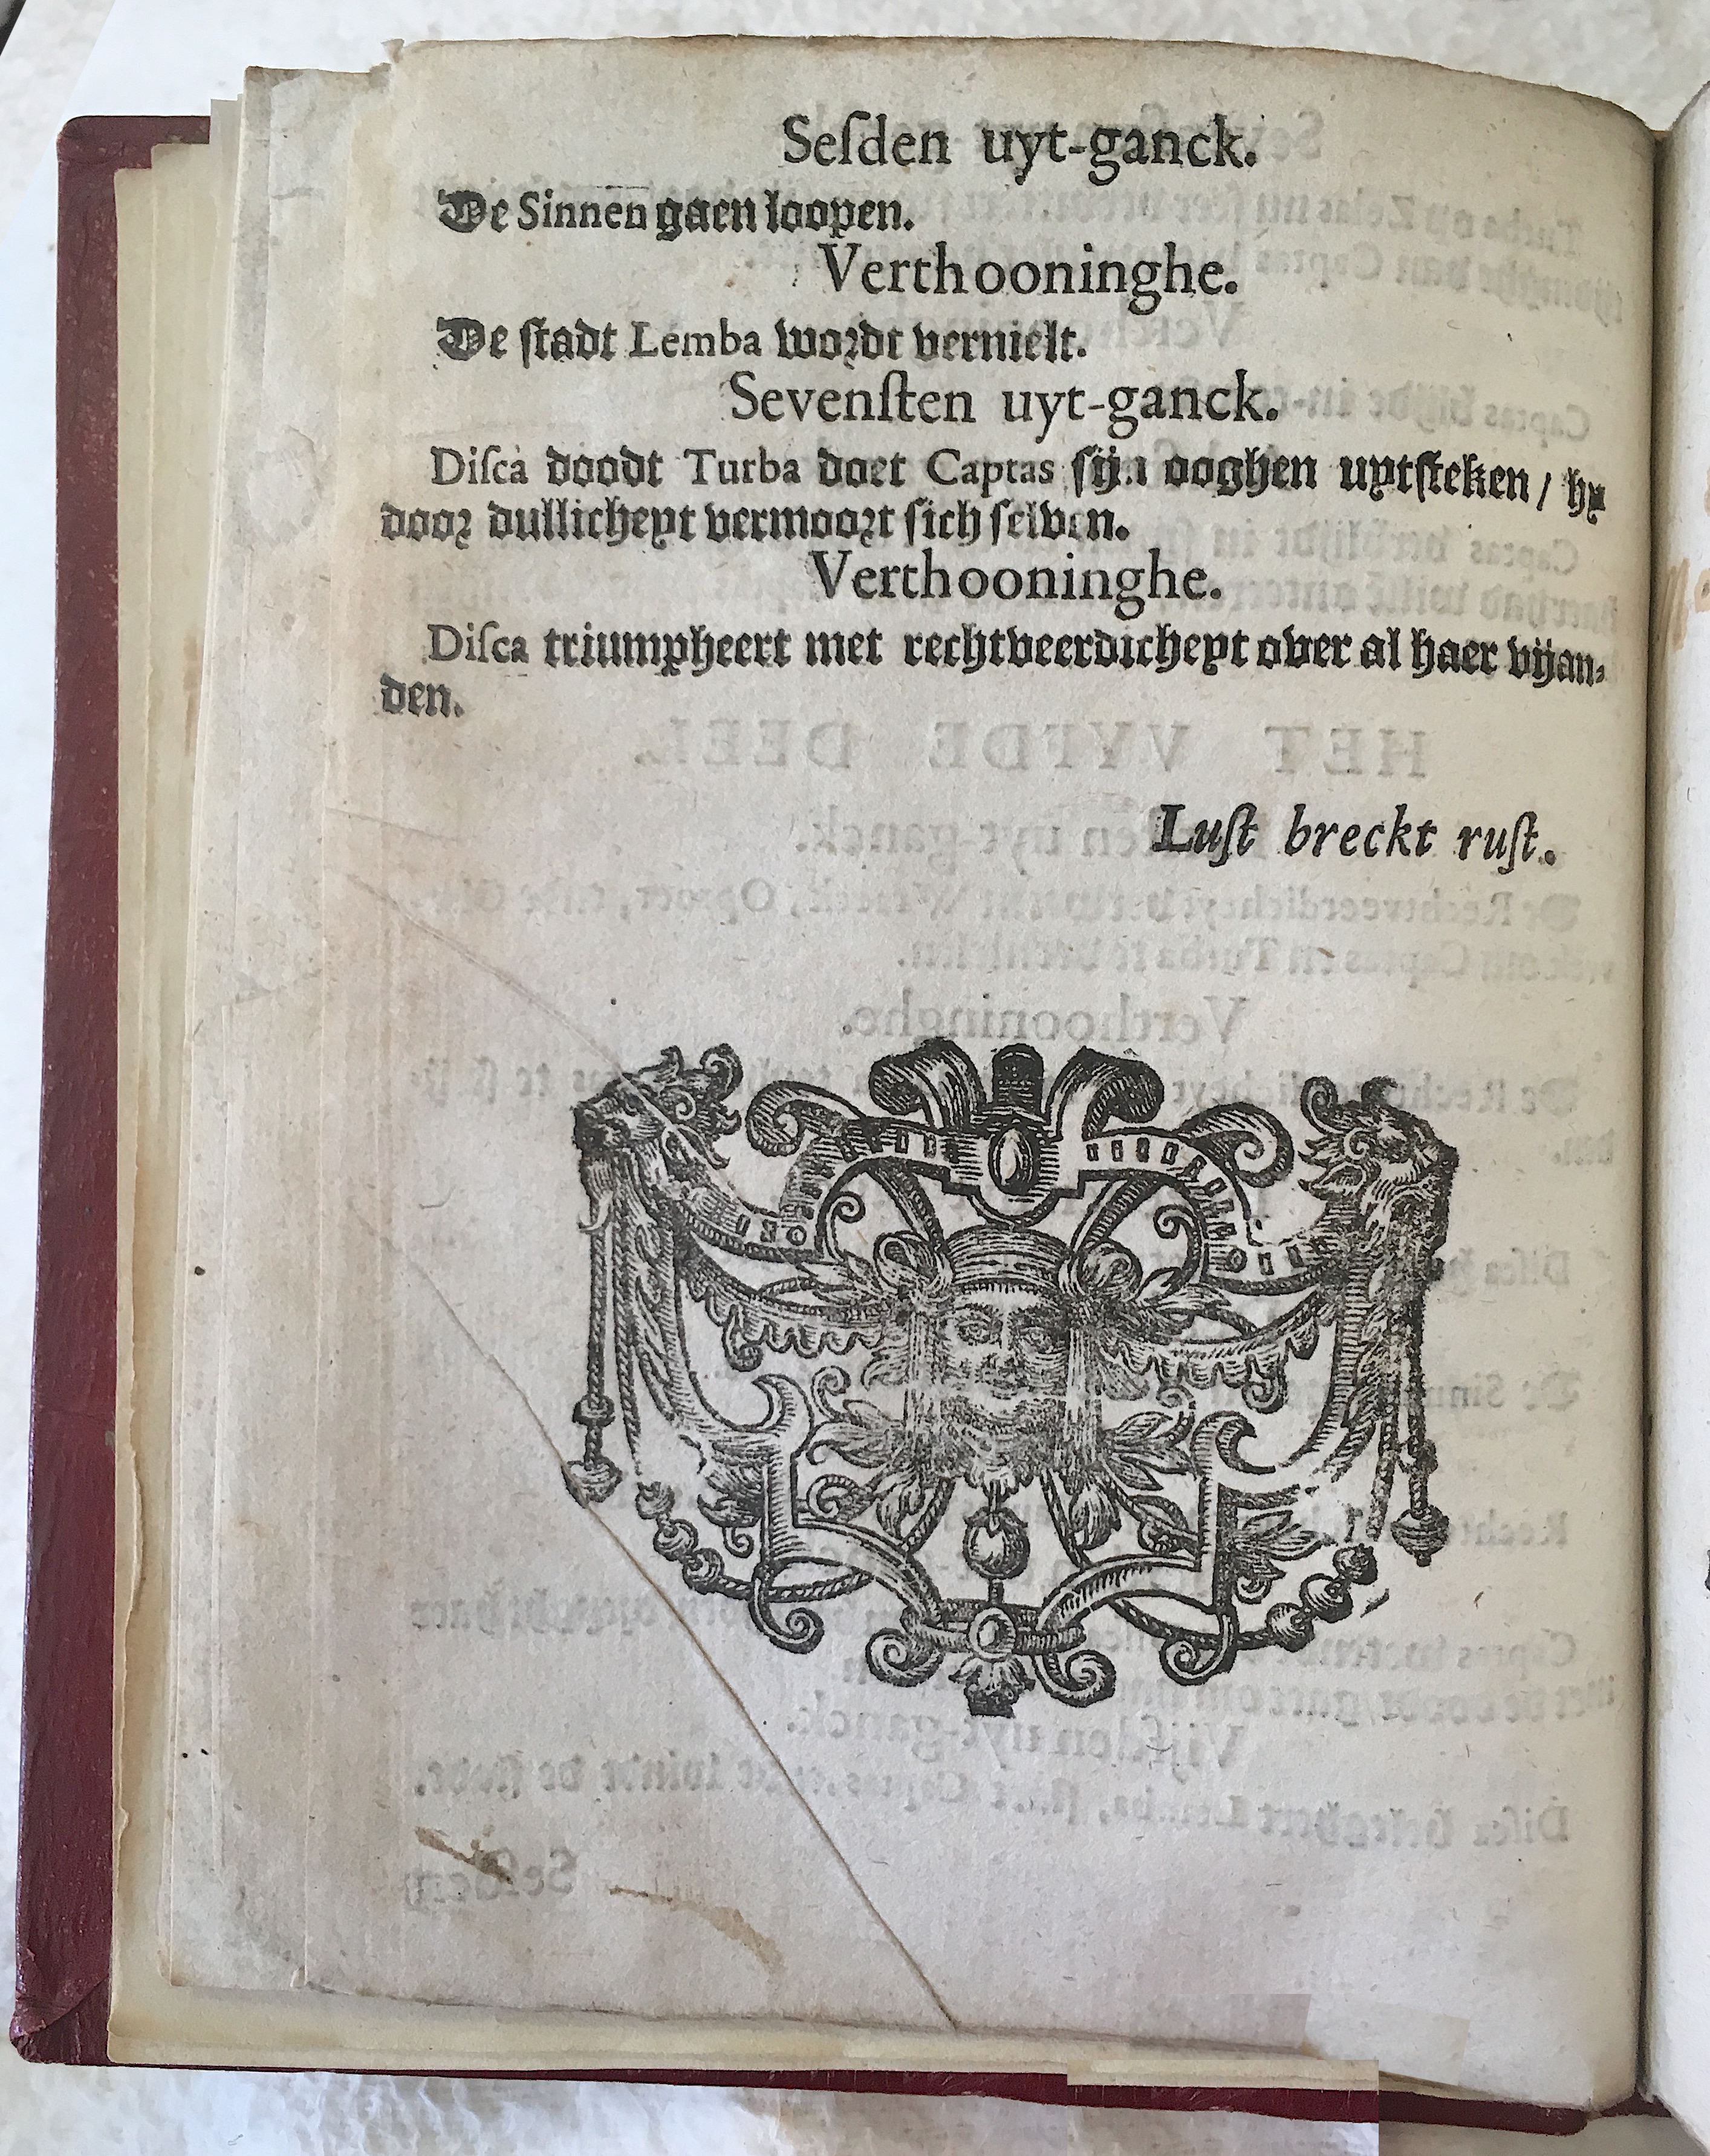 Seſden uyt-ganck.
De Sinnen gaen loopen.
Verthooninghe.
De ſtadt Lemba wordt vernielt.
Sevenſten uyt-ganck.
Diſca doodt Turba doet Captas ſijn ooghen uytſteken / hy
door dullicheyt vermoort ſich ſelven.
Verthooninghe.
Diſca triumpheert met rechtveerdicheyt over al haer vijan-
den.
Luſt breckt ruſt.